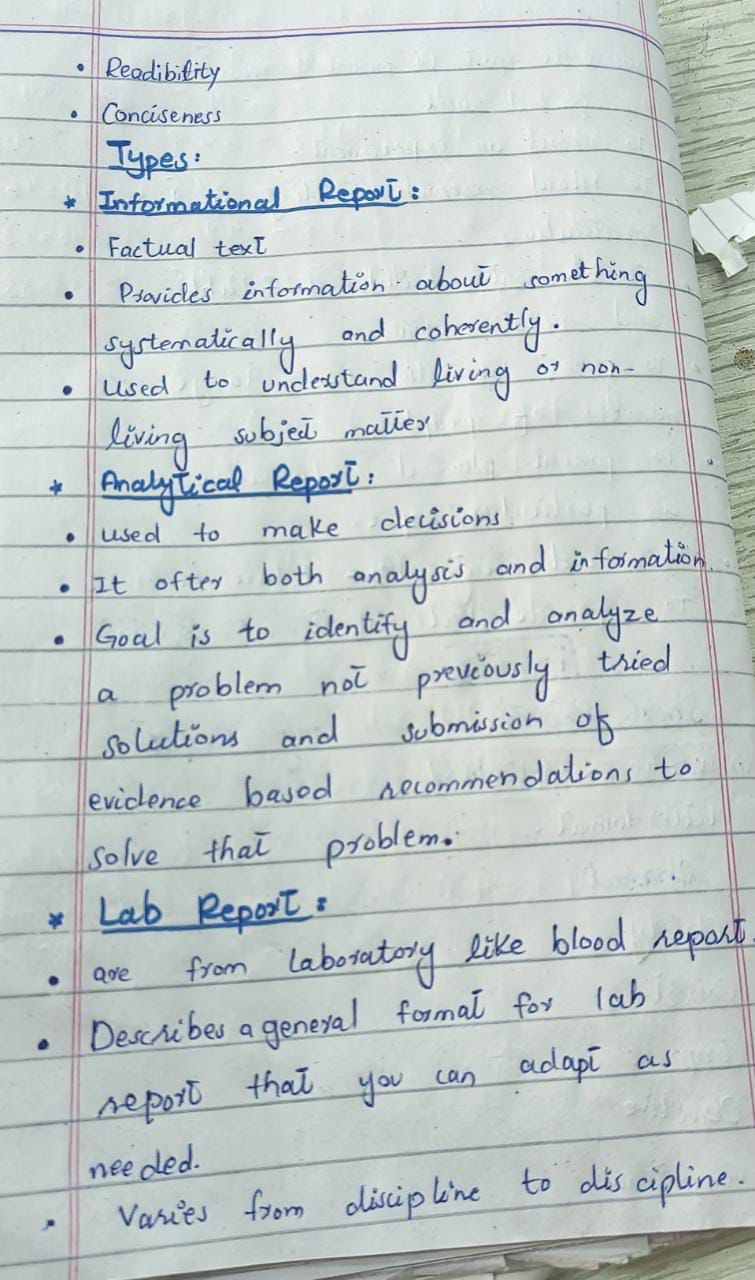 • Readibility
• Conciseness
Types:
* Informational Report:
• Factual text
• Provides information about something
systematically and coherently.
• Used to understand living or non-
living subject matter
* Analytical Report:
• used to make decisions
• It ofter both analysis and information.
• Goal is to identify and analyze
a problem not previously tried
solutions and submission of
evidence based recommendations to
solve that problem.
* Lab Report:
• are from laboratory like blood report.
• Describes a general format for lab
report that you can adapt as
needed.
• Varies from discipline to discipline.